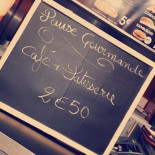 Pause Gourmande
Café + Patisserie
2€50